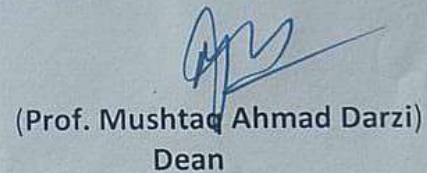 (Prof. Mushtaq Ahmad Darzi)
Dean